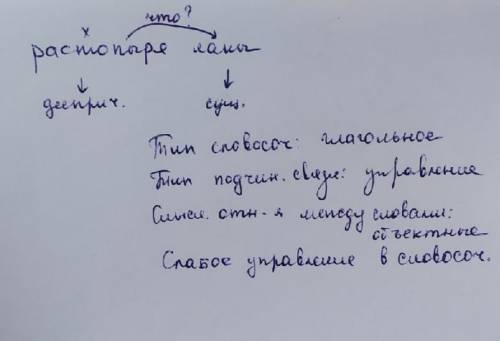 что?
х
растопыря лапы
дееприч. сущ.
Тип словосоч: глагольное
Тип подчин. связи: управление
Смысл. отн-я между словами:
объектные
Слабое управление в словосоч.